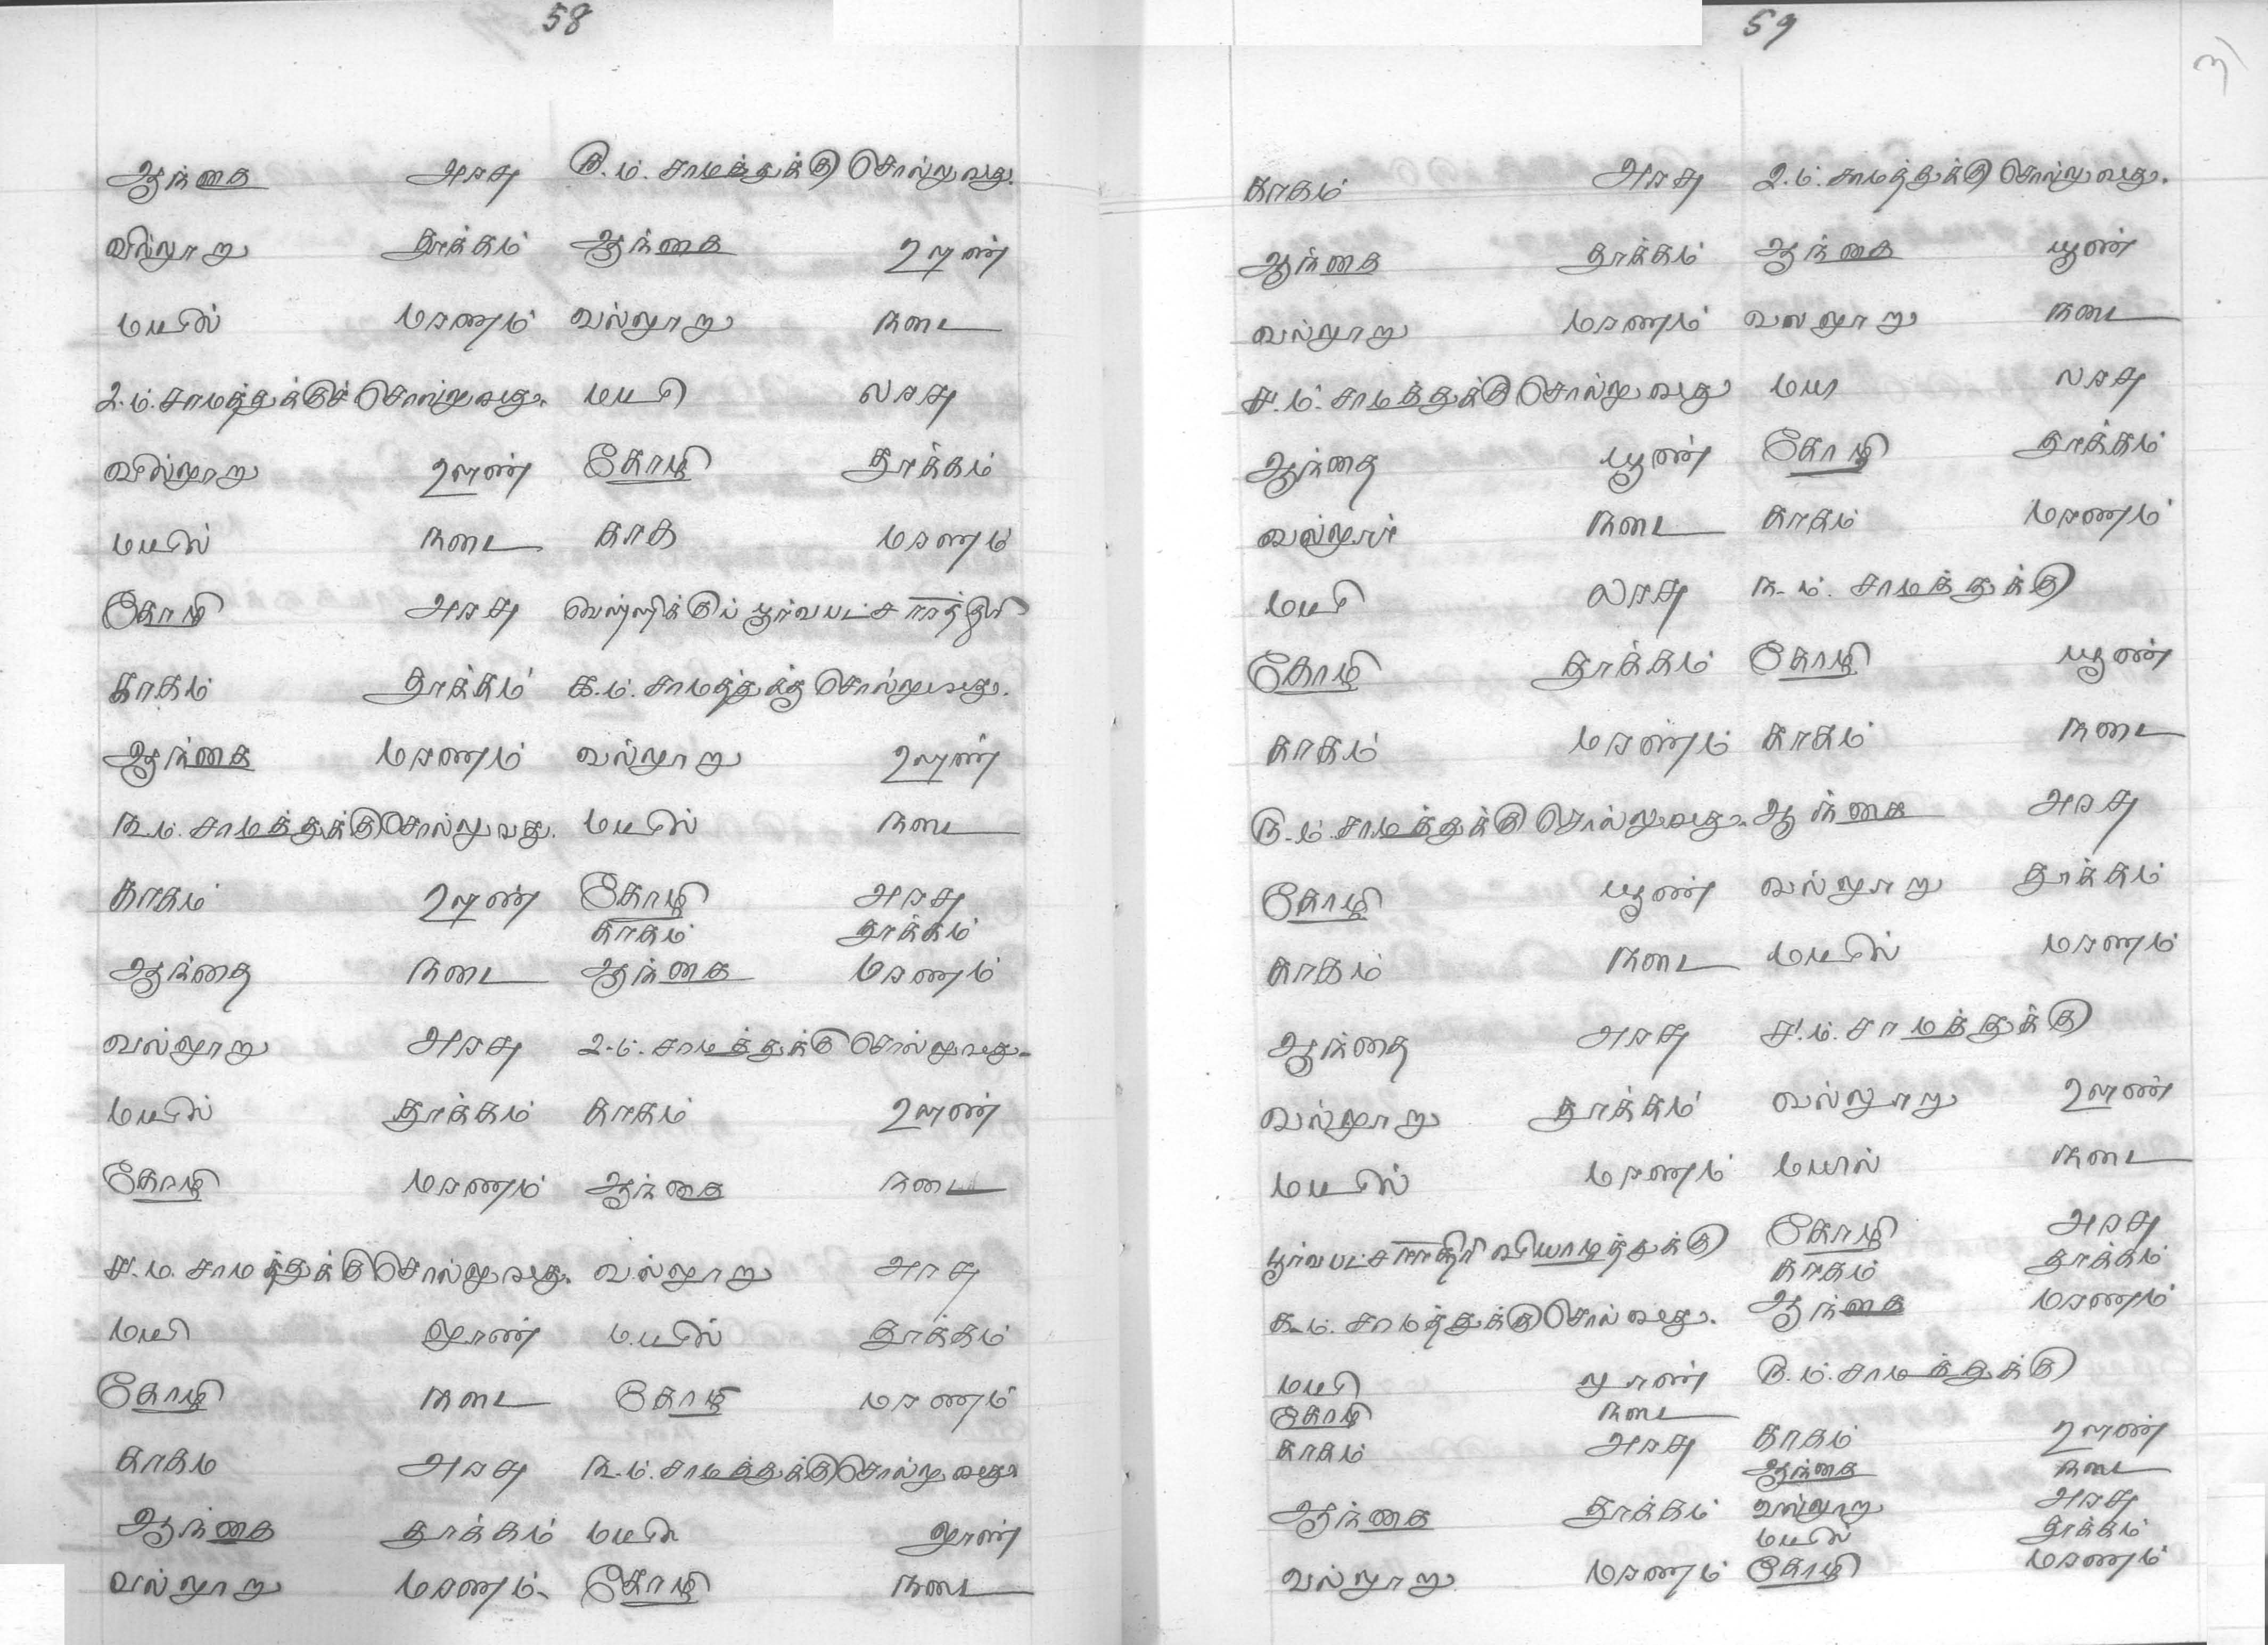 58
ஆந்தை அரசு
வில்லூறு தூக்கம்
மயில் மரணம்
௨.ம். சாமத்துக்குச் சொல்லுவது.
வில்லூறு ஊண்
மயில் நடை
கோழி அரசு
காகம் தூக்கம்
ஆந்தை மரணம்
௩.ம். சாமத்துக்கு சொல்லுவது.
காகம் ஊண்
ஆந்தை நடை
வல்லூறு அரசு
மயில் தூக்கம்
கோழி மரணம்
௪.ம. சாமத்துக்கு சொல்லுவது.
மயி லூண்
கோழி நடை
காகம அரசு
ஆந்தை தூக்கம்
வல்லூறு மரணம்.
௫.ம். சாமத்துக்கு சொல்லுவது.
ஆந்தை ஊண்
வல்லூறு நடை
மயி லரசு
கோழி தூக்கம்
காக மரணம்
வெள்ளிக்குப் பூர்வபட்ச ராத்திரி
௧.ம். சாமத்துக்கு சொல்லுவது.
வல்லூறு ஊண்
மயில் நடை
கோழி அரசு
காகம் தூக்கம்
ஆந்தை மரணம்
௨.ம். சாமத்துக்கு சொல்லுவது.
காகம் ஊண்
ஆந்தை நடை
வல்லூறு அரசு
மயில் தூக்கம்
கோழி மரணம்
௩.ம். சாமத்துக்கு சொல்லுவது
மயி லூண்
கோழி நடை
59
காகம் அரசு
ஆந்தை தூக்கம்
வல்லூறு மரணம்
௪.ம். சாமத்துக்கு சொல்லுவது
ஆந்தை யூண்
வல்லூர் நடை
மயி லரசு
கோழி தூக்கம்
காகம் மரணம்
௫.ம். சாமத்துக்கு சொல்லுவது.
கோழி யூண்
காகம் நடை
ஆந்தை அரசு
வல்லூறு தூக்கம்
மயில் மரணம்
பூர்வபட்ச ராத்திரி வியாழத்துக்கு
௧.ம். சாமத்துக்கு சொல்வது.
மயி லூண்
கோழி நடை
காகம் அரசு
ஆந்தை தூக்கம்
வல்லூறு மரணம்
௨.ம். சாமத்துக்கு சொல்லுவது.
ஆந்தை யூண்
வல லூறு நடை
மயி லரசு
கோழி தூக்கம்
காகம் மரணம்
௩.ம். சாமத்துக்கு
கோழி யூண்
காகம் நடை
ஆந்தை அரசு
வல்லூறு தூக்கம்
மயில் மரணம்
௪.ம். சாமத்துக்கு
வல்லூறு ஊண்
மயில் நடை
கோழி அரசு
காகம் தூக்கம்
ஆந்தை மரணம்
௫.ம். சாமத்துக்கு
காகம் ஊண்
ஆந்தை நடை
வல்லூறு அரசு
மயில் தூக்கம்
கோழி மரணம்